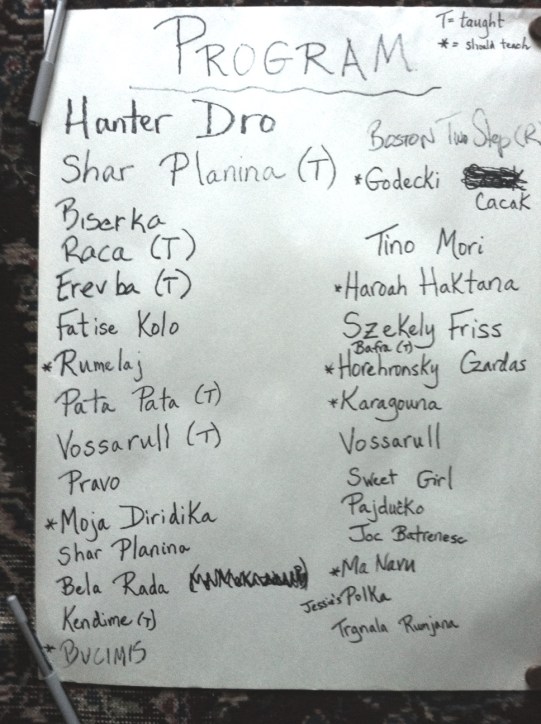 T= taught
*= should teach
PROGRAM
Hanter Dro
Shar Planina (T)
Biserka
Raca (T)
Erev ba (T)
Fatise Kolo
*Rumelaj
Pata Pata (T)
Vossarull (T)
Pravo
*Moja Diridika
Shar Planina
Bela Rada
Kendime (T)
*BUCIMIS
BOSTON Two Step (R)
*Godecki
Cacak
Tino Mori
*Haroah Haktana
Szekely Friss
Bafra (T)
*Horehronsky Czardas
*Karagouna
Vossarull
Sweet Girl
Pajdućko
Joc Batrenesc
*Ma Navu
Jessie's Polka
Trgnala Rumjana